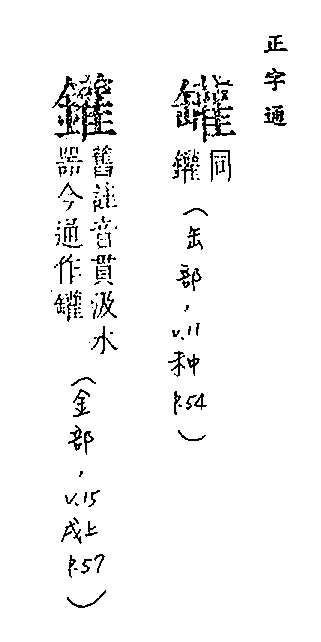 正字通
罐 同鑵(缶部,v.11未中p.54)
鑵 舊註音貫汲水器今通作罐(金部,v.15戌上p.57)